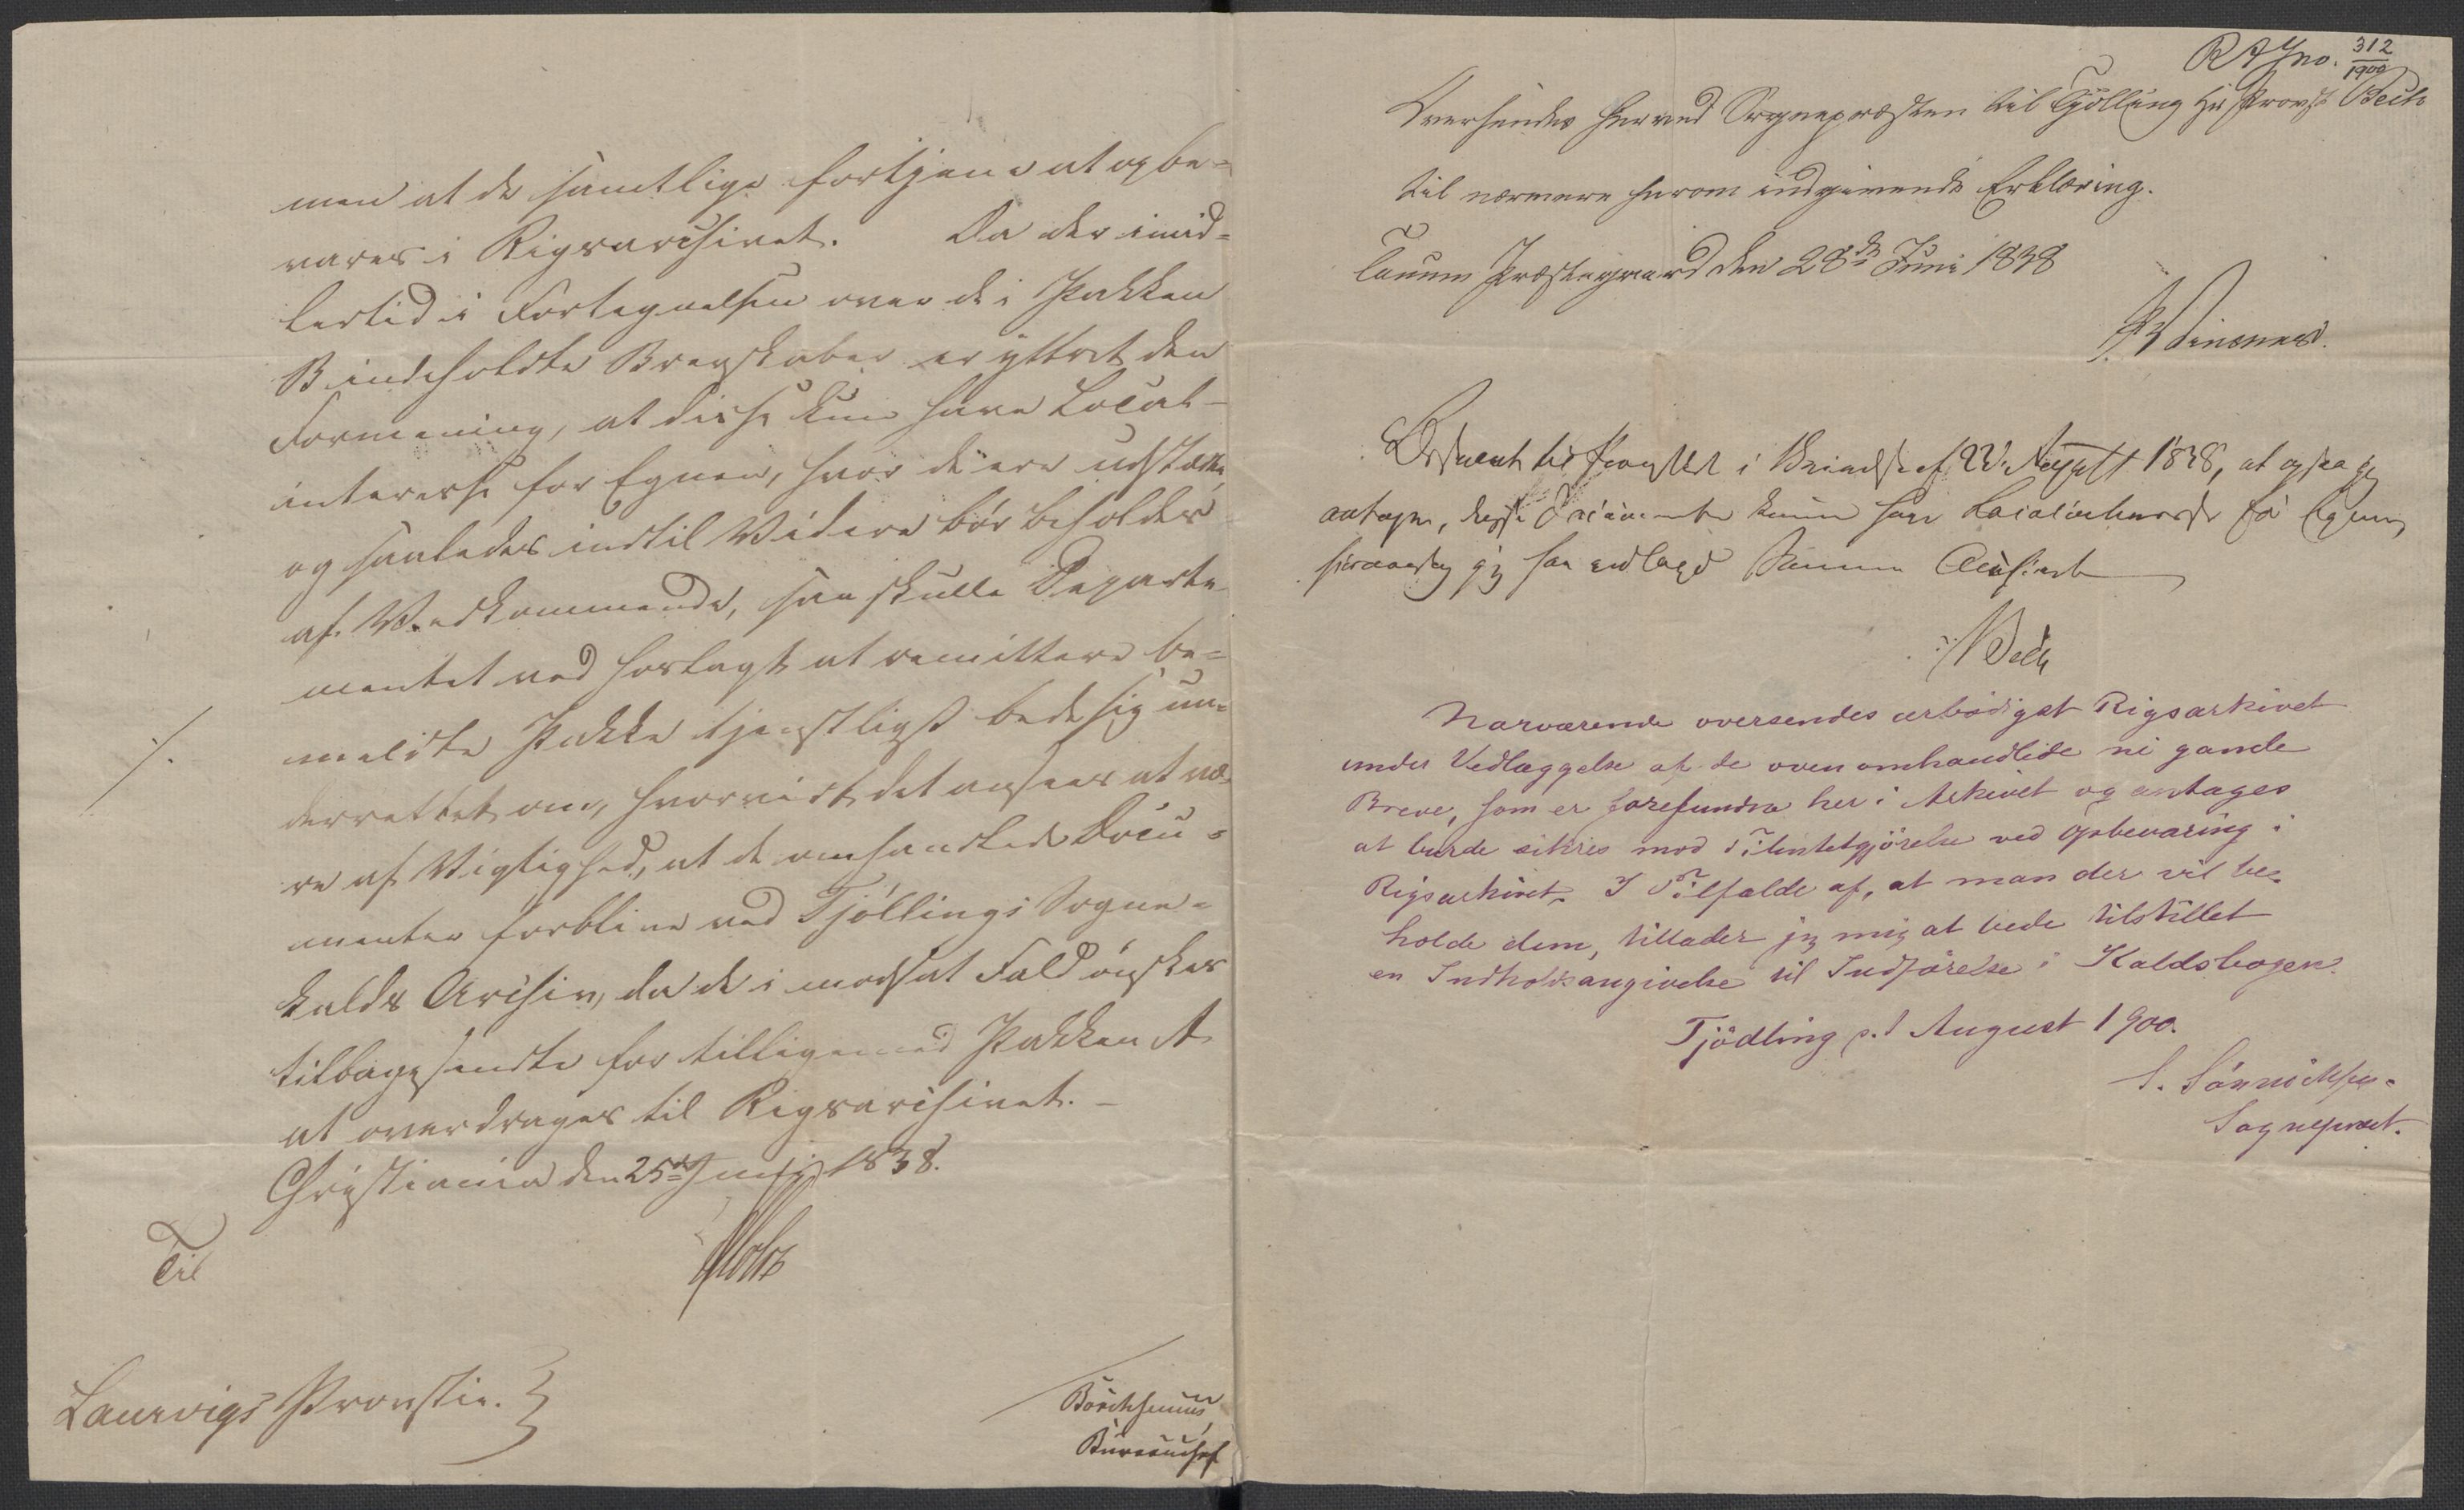 men at de samtlige fortjene at opbe=
vares i Rigsarchivet. Da der imid=
lertid i Fortegnelsen over de i Pakken
B indeholdte Brevskaber er yttret den
Formening, at disse kun have Local-
interesse for Egnen, hvor de ere udstædte,
og saaledes indtil Videre bör beholdes
af Vedkommende, saa skulle Departe
mentet ved Forlagt at remittere be=
meldte Pakke tjenstligst bede sig un=
derrettet om, hvorvidt det ansees at væ
re af Vigtighed, at de omhandlede Docu=
menter forblive ved Tjöllings Sogne=
kalds Archiv, da de i modsat Fald önskes
tilbagesendte for tilligemed Pakken A
at overdrages til Rigsarchivet. -
Christiania den 25de Junij 1838.
Holst
Til
Laurvigs Provstie. }
Borchsenius,
Bureauchef
RA Jno. 312/1900
Oversendes herved Sognepræsten til Tjölling Hr Provst Bech
til nærmere herom indgivende Erklæring.
Tanum Præstegaard den 28de Juni 1838
antager, disse Documenter kunne have Localinteresse for Egnen,
Bech
Nærværende oversendes ærbödigst Rigsarkivet
under Vedlæggelse af de oven omhandlede ni gamle
Breve, som er forefundne her i Arkivet og antages
at burde sikres mod Tilintetgjörelse ved Opbevaring i
Rigsarkivet. I Tilfælde af, at man der vil be-
holde dem, tillader jeg mig at bede tilstillet
en Indholdsangivelse til Indförelse i Kaldsbogen.
Tjödling p. 1 August 1900.
S. Sönnichsen.
Sognepræst.